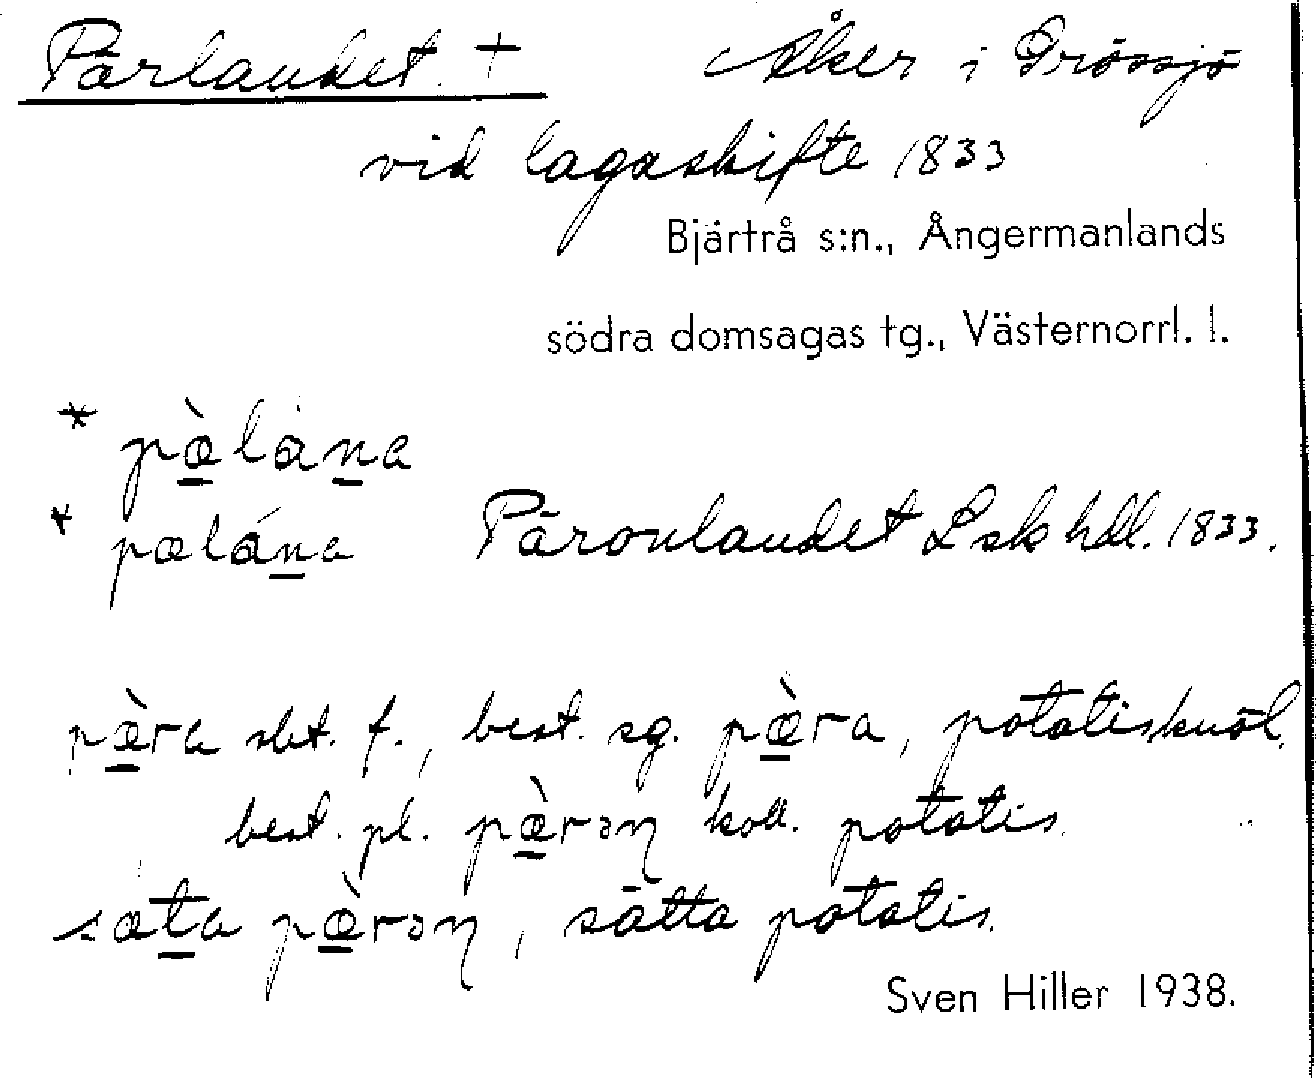 Pärlandet. † Åker i Grössjö
vid lagaskifte 1833
Bjärtrå s:n., Ångermanlands
södra domsagas tg., Västernorrl. l.
* pæ̀lána
* pælána Päronlandet Lsk hdl. 1833.
pæ̀ra sbt. f., best. sg. pæ̀ra, potatisknöl.
best. pl. pæ̀rəɳ koll. potatis.
sæta pæ̀rəɳ, sätta potatis.
Sven Hiller 1938.